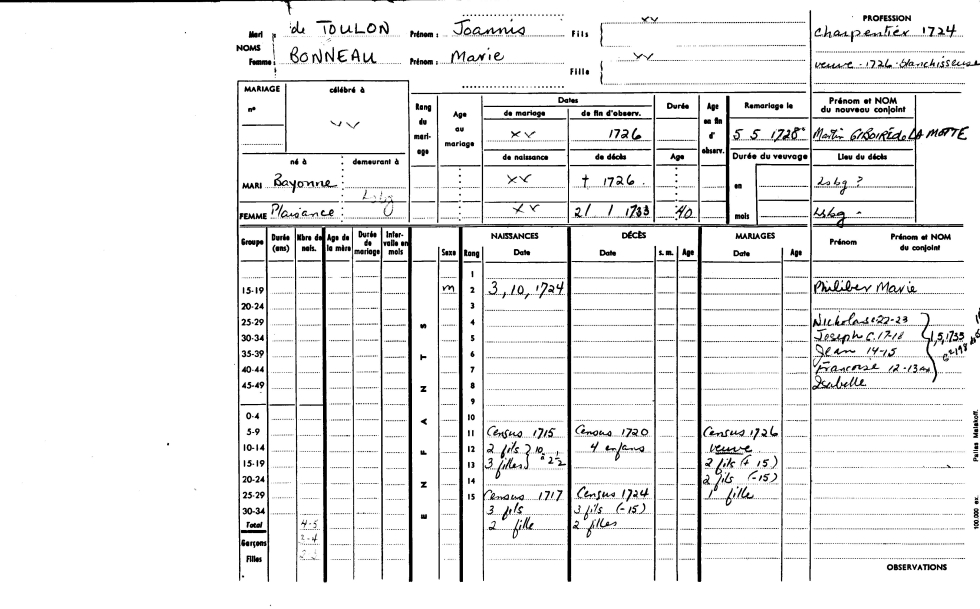 PROFESSION
Mari de TOULON Prénom : Joannis Fils charpentier 1724
NOMS
Femme BONNEAU Prénom : Marie Fille veuve - 1726 - blanchisseuse
MARIAGE
n°
célébré à
Rang du mariage
Age au mariage
Dates
de mariage de fin d'observ.
Durée
Age en fin d'observ.
Remariage le
Prénom et NOM du nouveau conjoint
xx 1726 5 5 1728 Martin GIBOIRE de LA MOTTE
de naissance de décès Age Durée du veuvage Lieu du décès
né à demeurant à
MARI Bayonne Lsbg xx + 1726. en Lsbg ?
FEMME Plaisance xx 21 1 1733 40 mois Lsbg
Groupe Durée (ans) Nbre de nais. Age de la mère Durée de mariage Intervalle en mois
ENFANTS
Sexe Rang
NAISSANCES Date
DÉCÈS Date s. m. Age
MARIAGES Date Age
Prénom Prénom et NOM du conjoint
1
15-19 m 2 3, 10, 1724 Philiber Marie
20-24 3
25-29 4 Nicholas c 22-23
30-34 5 Joseph c. 17-18 1,5,1733
35-39 6 Jean 14-15
40-44 7 Francoise 12-13
45-49 8 Isabelle
9
0-4 10
5-9 11 Census 1715 Census 1720 Census 1726
10-14 12 2 fils 4 enfans veuve
15-19 13 3 filles 2 fils (+ 15)
20-24 14 2 fils (-15)
25-29 15 Census 1717 Census 1724 1 fille
30-34 3 fils 3 fils (-15)
Total 4-5 2 fille 2 filles
Garçons 2-4
Filles
OBSERVATIONS
100.000 ex.
Pallas Malakoff.